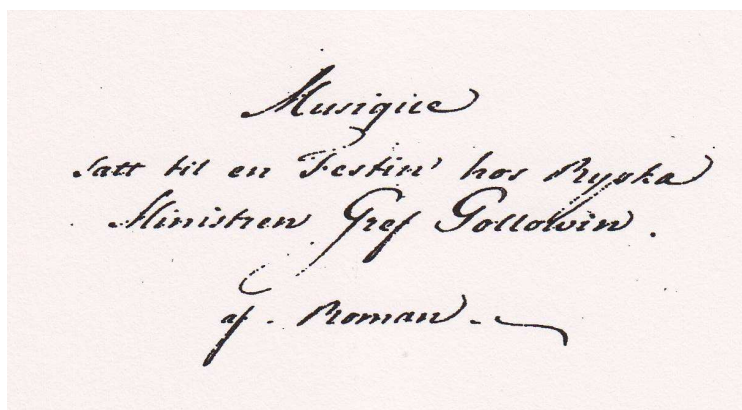 Musiqüe
satt til en Festin' hos Ryska
Ministren Gref Gollowin.
af - Roman -